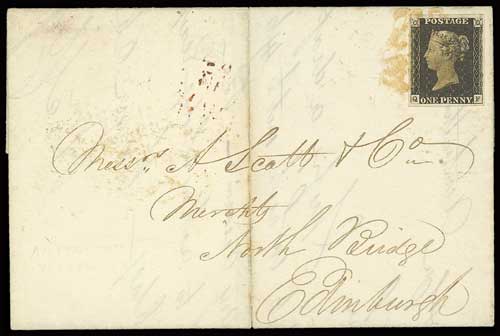 POSTAGE
Q F
ONE PENNY
Messrs A Scott & Co
Merchts
North Bridge
Edinburgh